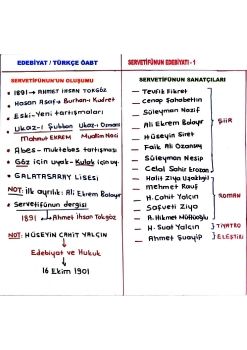 EDEBİYAT / TÜRKÇE ÖABT
SERVETİFÜNUN EDEBİYATI - 1
SERVETİFÜNUN'UN OLUŞUMU
1891 → AHMET İHSAN TOKGÖZ
Hasan Asaf → Burhan-ı Kudret
Eski-Yeni tartışmaları
Mahmut EKREM Muallim Naci
Abes - muktebes tartışması
Göz için uyak - Kulak için uy.
GALATASARAY LİSESİ
NOT: ilk ayrılık: Ali Ekrem Bolayır
Servetifünun dergisi
1891 → Ahmet İhsan Tokgöz
NOT: HÜSEYİN CAHİT YALÇIN
Edebiyat ve Hukuk
16 Ekim 1901
SERVETİFÜNUN SANATÇILARI
Tevfik Fikret
Cenap Şahabettin
Süleyman Nazif
Ali Ekrem Bolayır
Hüseyin Siret
Faik Ali Ozansoy
Süleyman Nesip
Celal Sahir Erozan
ŞİİR
Halit Ziya Uşaklıgil
mehmet Rauf
H. Cahit Yalçın
Safveti Ziya
A. Hikmet Müftüoğlu
ROMAN
H. Suat Yalçın → TİYATRO
Ahmet Şuayip → ELEŞTİRİ